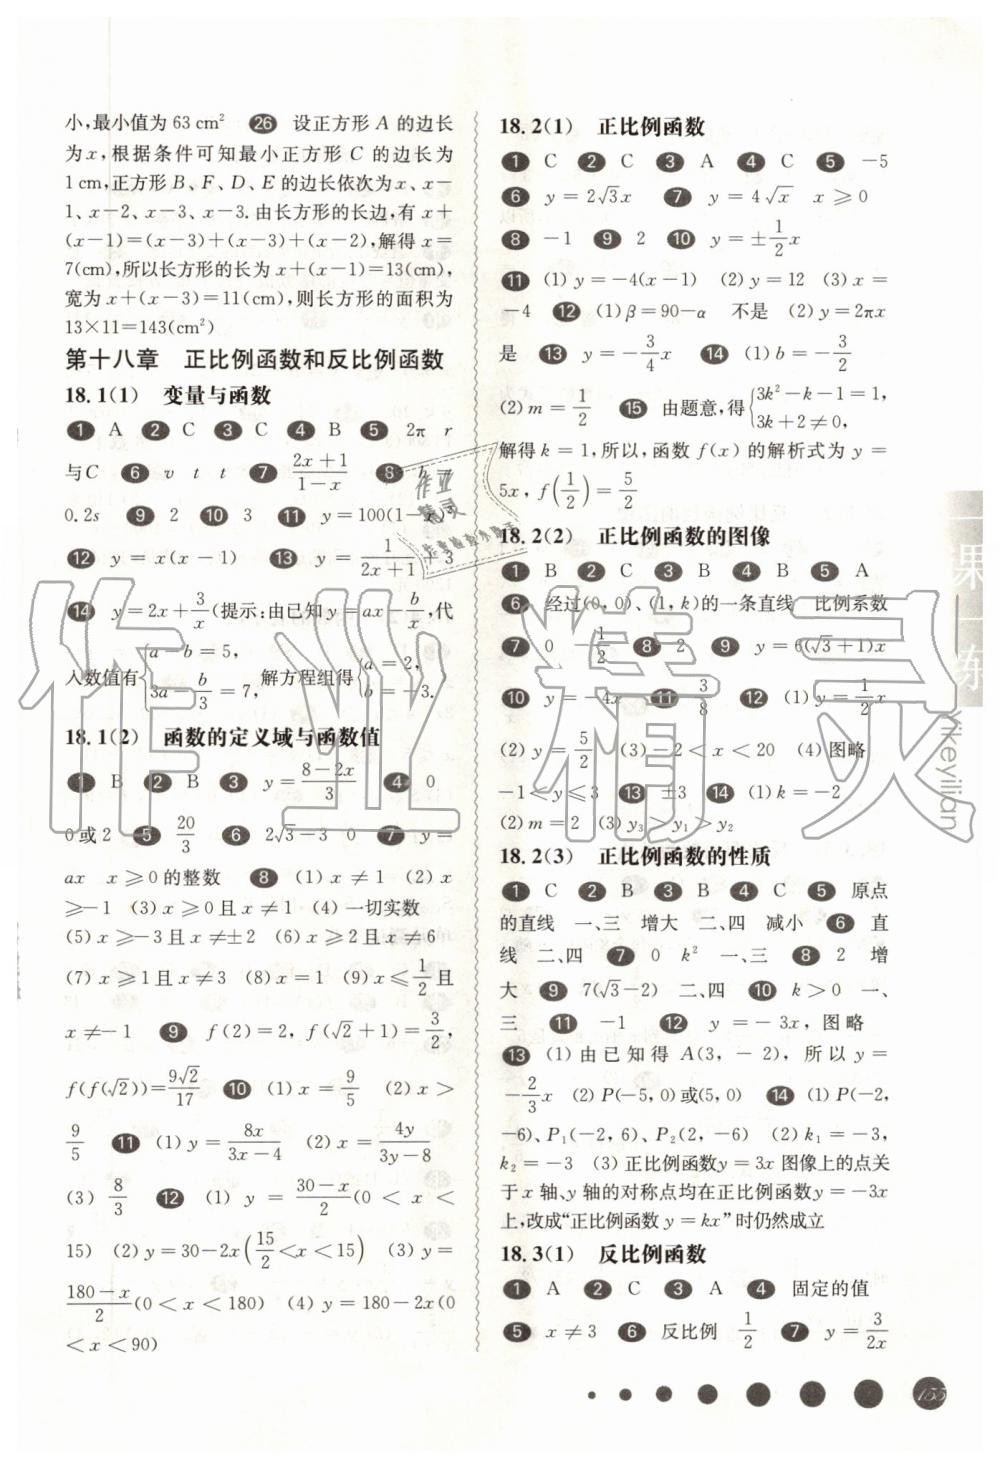 小,最小值为63 cm² 26 设正方形A的边长
为x,根据条件可知最小正方形C的边长为
1 cm,正方形B、F、D、E的边长依次为x、x-
1、x-2、x-3、x-3.由长方形的长边,有x+
(x-1)=(x-3)+(x-3)+(x-2),解得x=
7(cm),所以长方形的长为x+(x-1)=13(cm),
宽为x+(x-3)=11(cm),则长方形的面积为
13×11=143(cm²)
第十八章 正比例函数和反比例函数
18.1(1) 变量与函数
1 A 2 C 3 C 4 B 5 2π r
与C 6 v t t 7 (2x+1)/(1-x) 8
0.2s 9 2 10 3 11 y=100(1-x)³
12 y=x(x-1) 13 y=1/(2x+1)+3
14 y=2x+3/x(提示:由已知y=ax-b/x,代
入数值有{a-b=5, 3a-b/3=7,解方程组得{a=2, b=-3.
18.1(2) 函数的定义域与函数值
1 B 2 B 3 y=(8-2x)/3 4 0
0或2 5 20/3 6 2√3-3 0 7 y=
ax x≥0的整数 8 (1) x≠1 (2) x
≥-1 (3) x≥0且x≠1 (4) 一切实数
(5) x≥-3且x≠±2 (6) x≥2且x≠6
(7) x≥1且x≠3 (8) x=1 (9) x≤1/2且
x≠-1 9 f(2)=2, f(√2+1)=3/2,
f(f(√2))=9√2/17 10 (1) x=9/5 (2) x>
9/5 11 (1) y=8x/(3x-4) (2) x=4y/(3y-8)
(3) 8/3 12 (1) y=(30-x)/2(0<x<
15) (2) y=30-2x(15/2<x<15) (3) y=
(180-x)/2(0<x<180) (4) y=180-2x(0
<x<90)
18.2(1) 正比例函数
1 C 2 C 3 A 4 C 5 -5
6 y=2√3x 7 y=4√x x≥0
8 -1 9 2 10 y=±1/2x
11 (1) y=-4(x-1) (2) y=12 (3) x=
-4 12 (1) β=90-α 不是 (2) y=2πx
是 13 y=-3/4x 14 (1) b=-3/2
(2) m=1/2 15 由题意,得{3k²-k-1=1, 3k+2≠0,
解得k=1,所以,函数f(x)的解析式为y=
5x, f(1/2)=5/2
18.2(2) 正比例函数的图像
1 B 2 C 3 B 4 B 5 A
6 经过(0,0)、(1,k)的一条直线 比例系数
7 0 -1/2 8 2 9 y=6(√3+1)x
10 y=-4x 11 3/8 12 (1) y=1/2x
(2) y=5/2 (3) -2<x<20 (4) 图略
-1<y≤3 13 ±3 14 (1) k=-2
(2) m=2 (3) y₃>y₁>y₂
18.2(3) 正比例函数的性质
1 C 2 B 3 B 4 C 5 原点
的直线 一、三 增大 二、四 减小 6 直
线 二、四 7 0 k² 一、三 8 2 增
大 9 7(√3-2) 二、四 10 k>0 一、
三 11 -1 12 y=-3x,图略
13 (1) 由已知得A(3,-2),所以y=
-2/3x (2) P(-5,0)或(5,0) 14 (1) P(-2,
-6)、P₁(-2,6)、P₂(2,-6) (2) k₁=-3,
k₂=-3 (3) 正比例函数y=3x图像上的点关
于x轴、y轴的对称点均在正比例函数y=-3x
上,改成“正比例函数y=kx”时仍然成立
18.3(1) 反比例函数
1 A 2 C 3 A 4 固定的值
5 x≠3 6 反比例 1/2 7 y=3/(2x)
155
作业精灵
作业
精灵
课一练
Yikeyilian